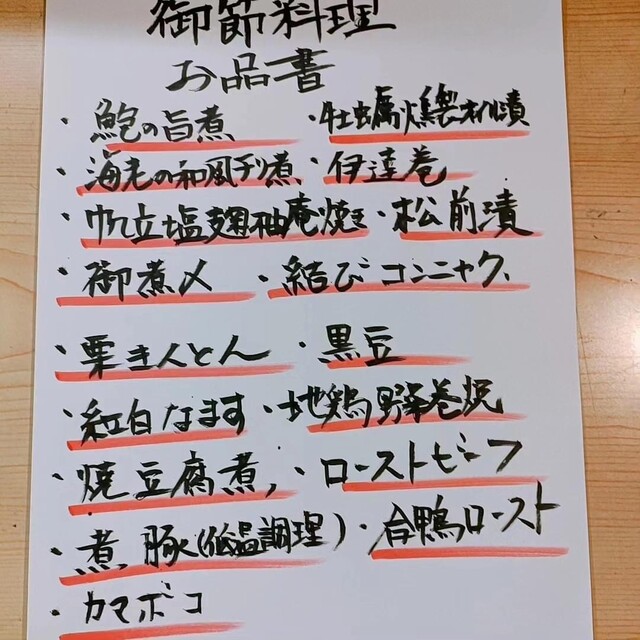 御節料理
お品書
・鮑の旨煮 ・牡蠣燻製オイル漬
・海老の和風チリ煮 ・伊達巻
・帆立塩麹柚庵焼き ・松前漬
・御煮〆 ・結びコンニャク、
・栗きんとん ・黒豆
・紅白なます ・地鶏野菜巻焼
・焼豆腐煮、 ・ローストビーフ
・煮豚(低温調理) ・合鴨ロースト
・カマボコ